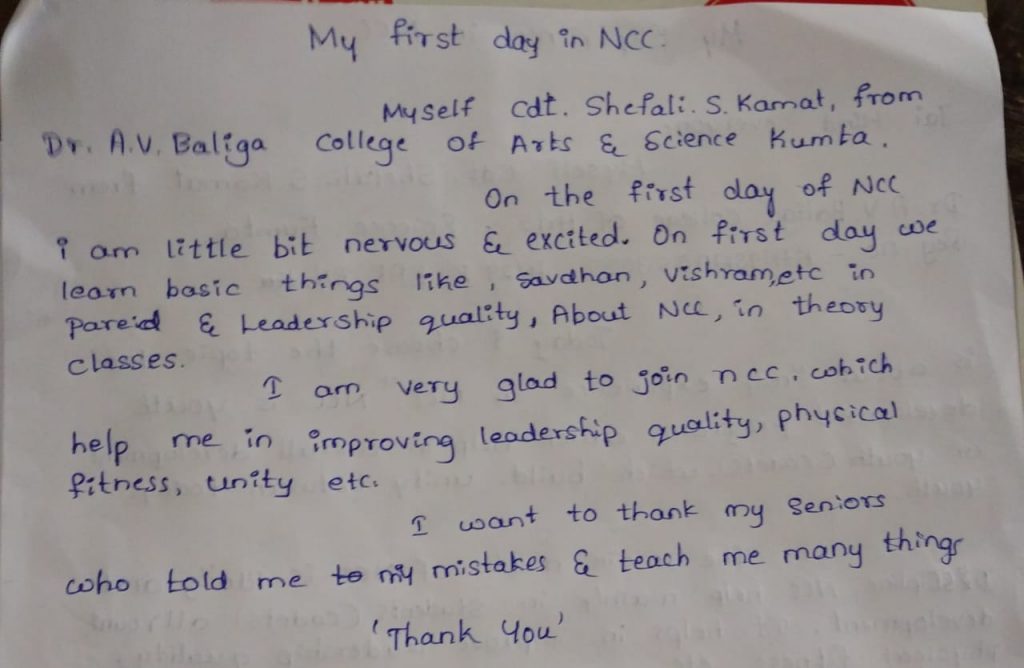 My first day in NCC.
Myself Cdt. Shefali. S. Kamat, from
Dr. A.V. Baliga College of Arts & Science Kumta.
On the first day of NCC
i am little bit nervous & excited. On first day we
learn basic things like, Savdhan, Vishram,etc in
pareid & Leadership quality, About NCC, in theory
classes.
I am very glad to join ncc. which
help me in improving leadership quality, physical
fitness, unity etc.
I want to thank my Seniors
who told me to my mistakes & teach me many things
'Thank You'